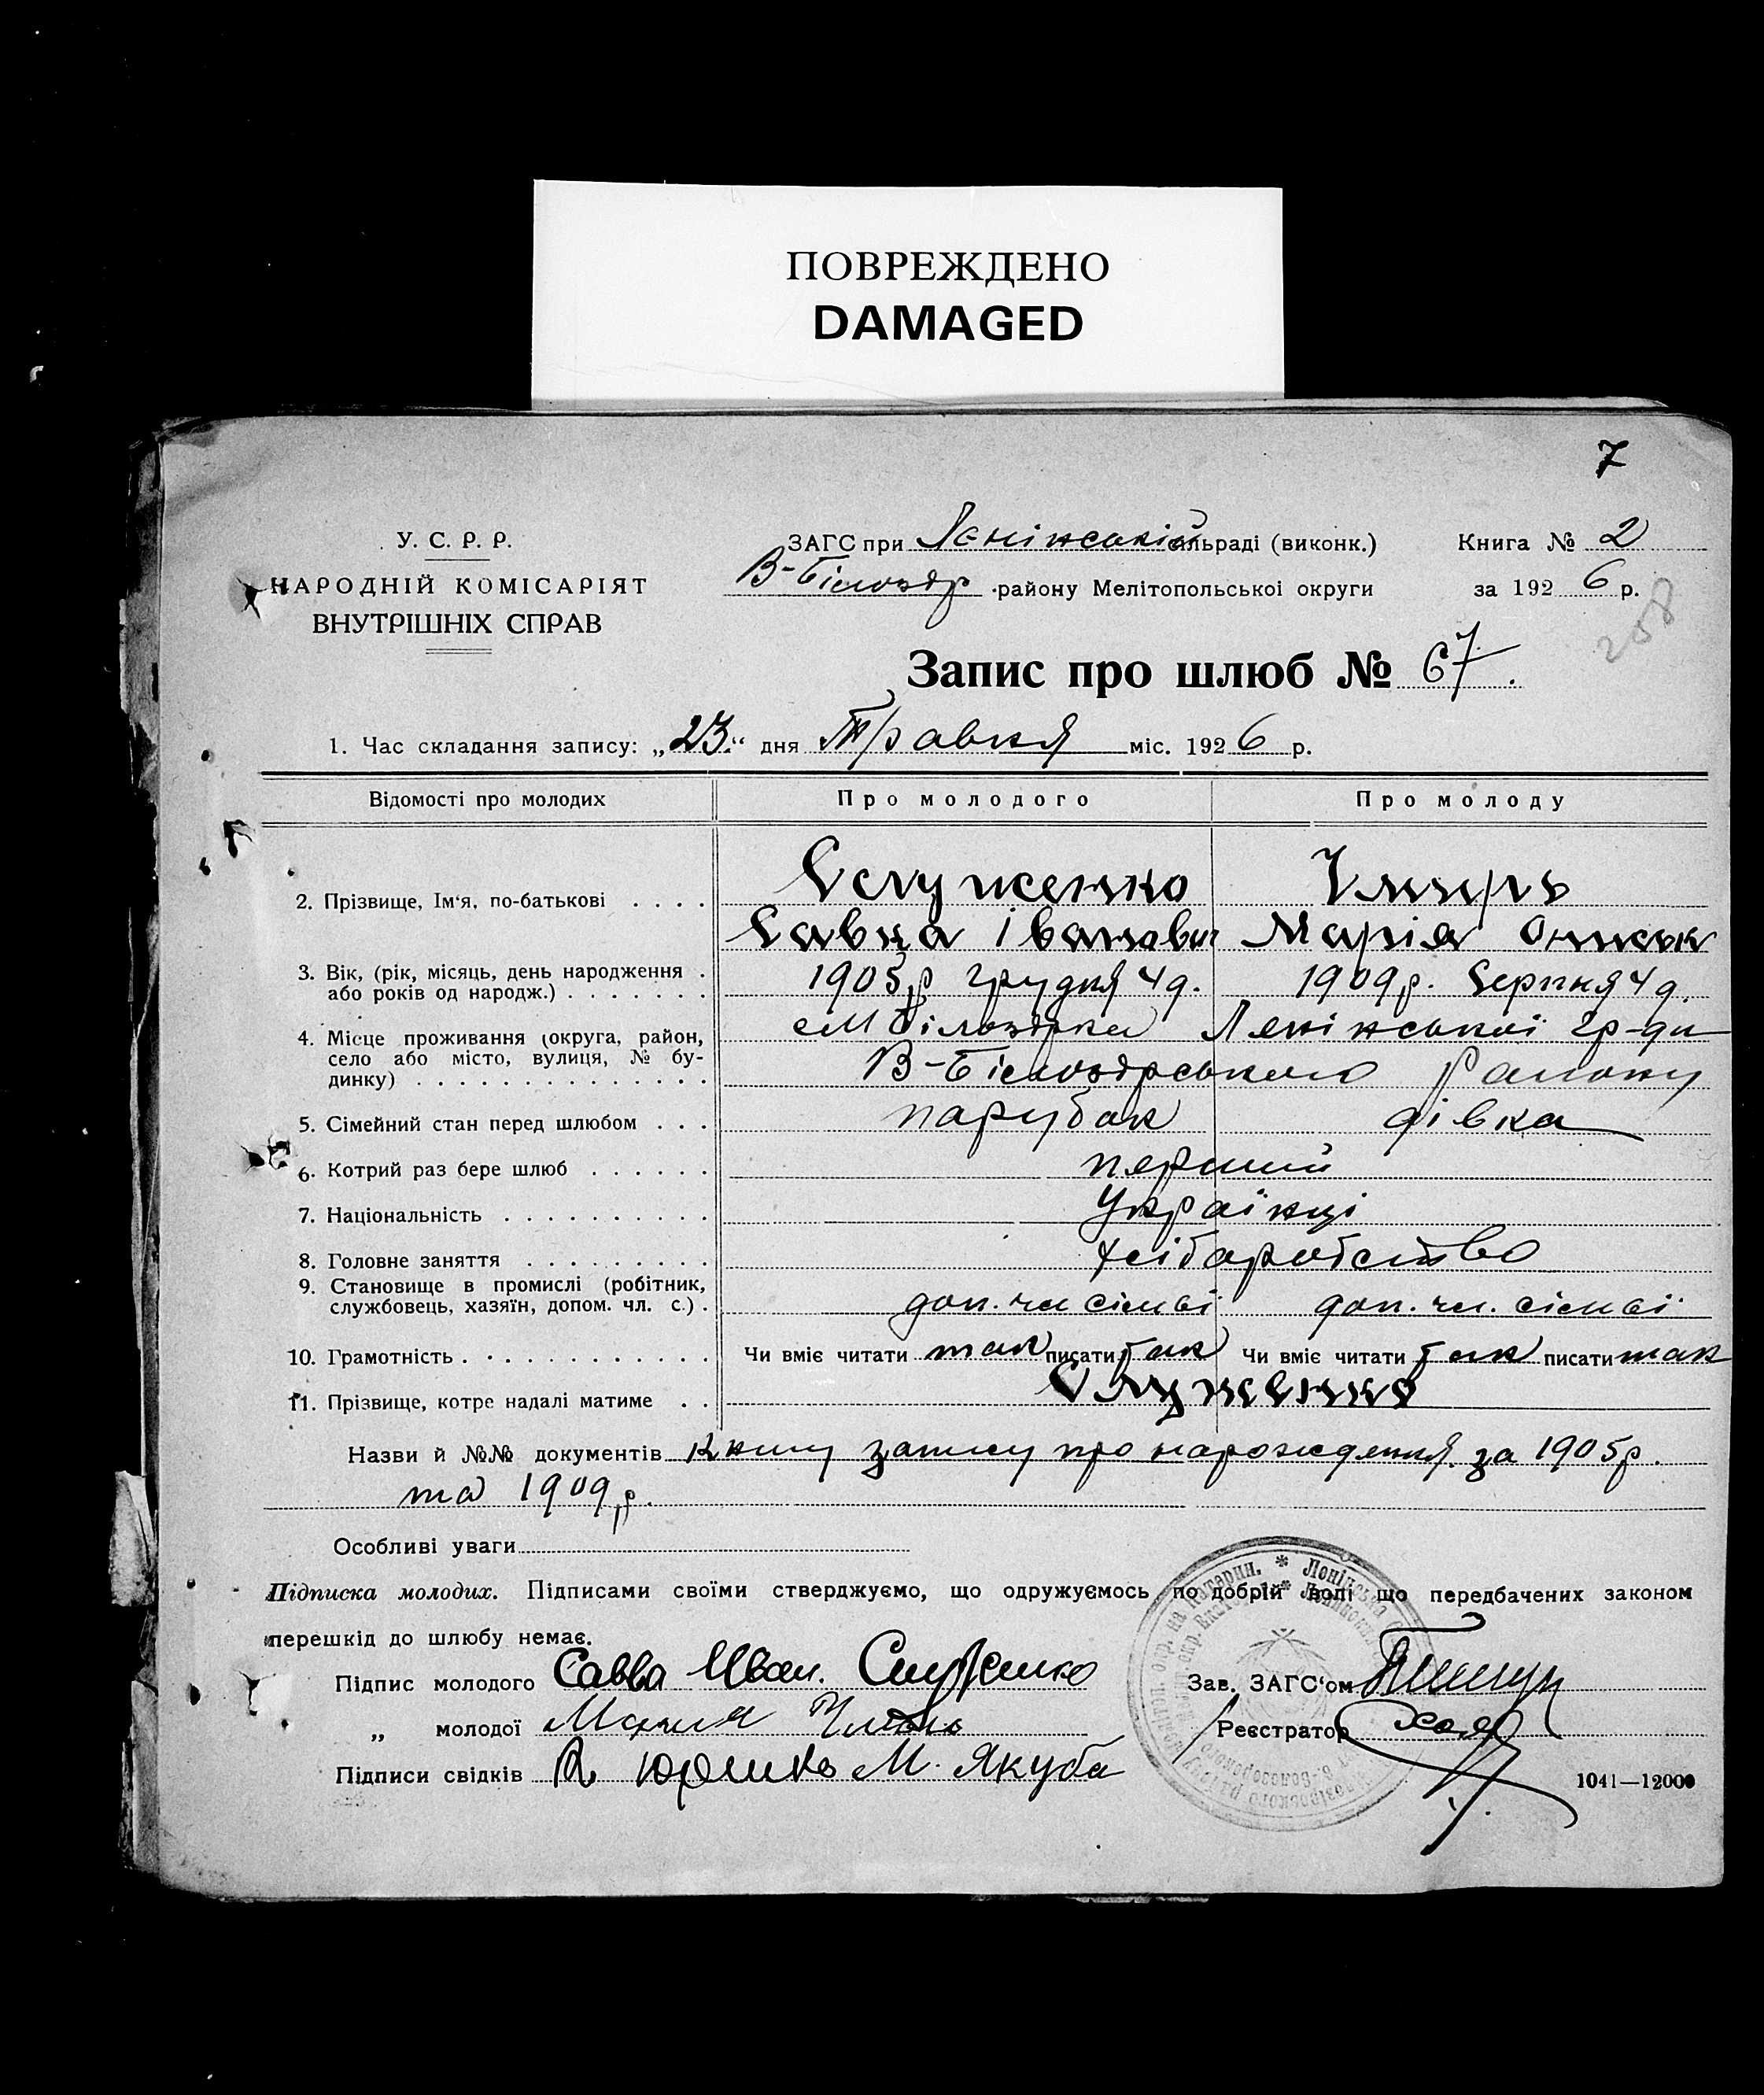 ПОВРЕЖДЕНО
DAMAGED
7
У. С. Р. Р.
НАРОДНІЙ КОМІСАРІЯТ
ВНУТРІШНІХ СПРАВ
ЗАГС при Ленінській сільраді (виконк.)
В-Білозер. району Мелітопольської округи
Книга № 2
за 1926 р.
258
Запис про шлюб № 67.
1. Час складання запису: „23“ дня Травня міс. 1926 р.
Відомості про молодих Про молодого Про молоду
2. Прізвище, Ім'я, по-батькові . . . . Служенко
Савка Іванович Марія Ониськ
3. Вік, (рік, місяць, день народження . або років од народж.) . . . . . . . 1905 р грудня 4 д. 1909 р. Серпня 4 д.
4. Місце проживання (округа, район, село або місто, вулиця, № будинку) . . . . . . . . . . . . . . Ленінської
В-Білозерського Району
5. Сімейний стан перед шлюбом . . . парубок дівка
6. Котрий раз бере шлюб . . . . . . перший
7. Національність . . . . . . . . . . Українці
8. Головне заняття . . . . . . . . . хліборобство
9. Становище в промислі (робітник, службовець, хазяїн, допом. чл. с.) . доп. чл сімьї доп. чл. сімьї
10. Грамотність . . . . . . . . . . . Чи вміє читати так писати так Чи вміє читати так писати так
11. Прізвище, котре надалі матиме . . Служенко
Назви й №№ документів Книгу запису про нарождення за 1905 р.
та 1909 р.
Особливі уваги
Підписка молодих. Підписами своїми стверджуємо, що одружуємось по добрій волі що передбачених законом
перешкід до шлюбу немає.
Підпис молодого Савва Иван. Служенко
„ молодої Мария
Підписи свідків М. Якуба
Зав. ЗАГС'ом
Реєстратор
1041—12000